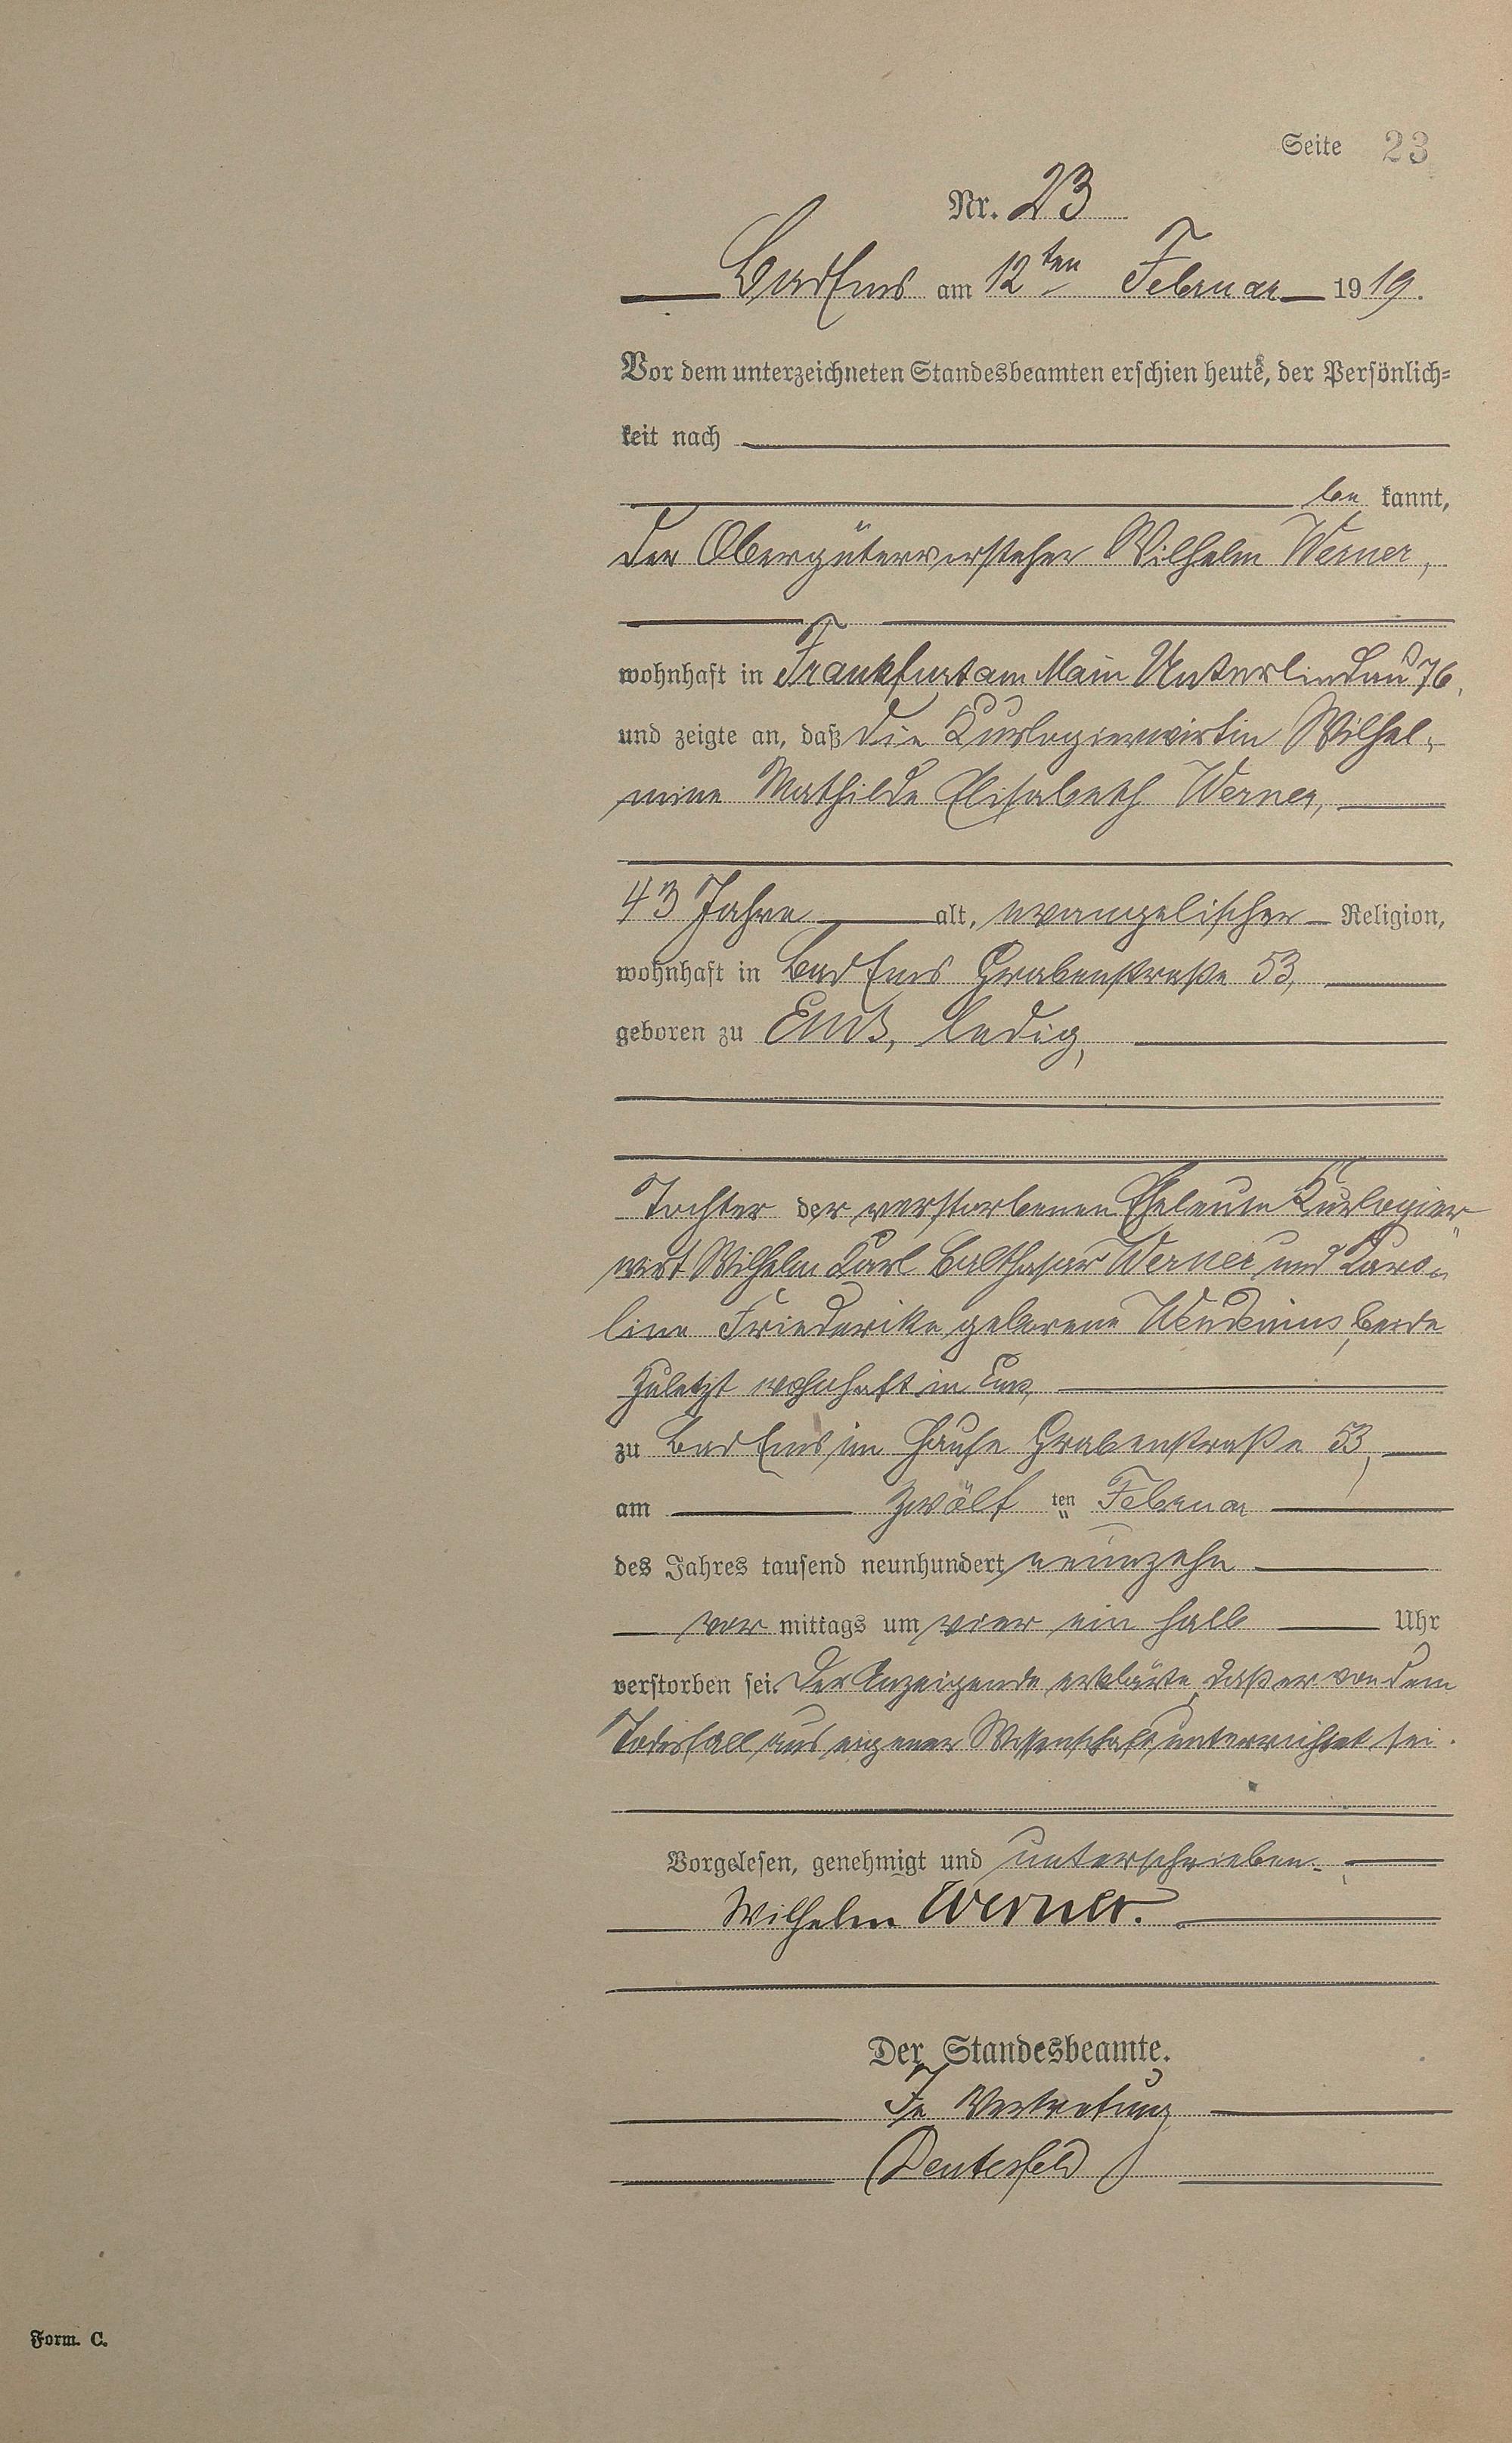 Seite 23
Nr. 23
Bad Ems am 12ten Februar 1919.
Vor dem unterzeichneten Standesbeamten erschien heute, der Persönlich-
keit nach
be kannt,
der Obergütervorsteher Wilhelm Werner,
wohnhaft in Frankfurt am Main Unterlindau 76,
und zeigte an, daß die Kurlogierwirtin Wilhel-
mine Mathilde Elisabeth Werner,
43 Jahre alt, evangelischer Religion,
wohnhaft in Bad Ems Grabenstraße 53,
geboren zu Ems, ledig,
Tochter der verstorbenen Eheleute Kurlogier-
wirt Wilhelm Karl Balthasar Werner und Karo-
line Friederike geborene beide
zuletzt wohnhaft in Ems,
zu Bad Ems im Hause Grabenstraße 53,
am zwölf ten Februar
des Jahres tausend neunhundert neunzehn
vor mittags um vier ein halb Uhr
verstorben sei. Der Anzeigende erklärte, daß er von dem
Todesfall aus eigener Wissenschaft unterrichtet sei.
Vorgelesen, genehmigt und unterschrieben.
Wilhelm Werner.
Der Standesbeamte.
In Vertretung
Form. C.